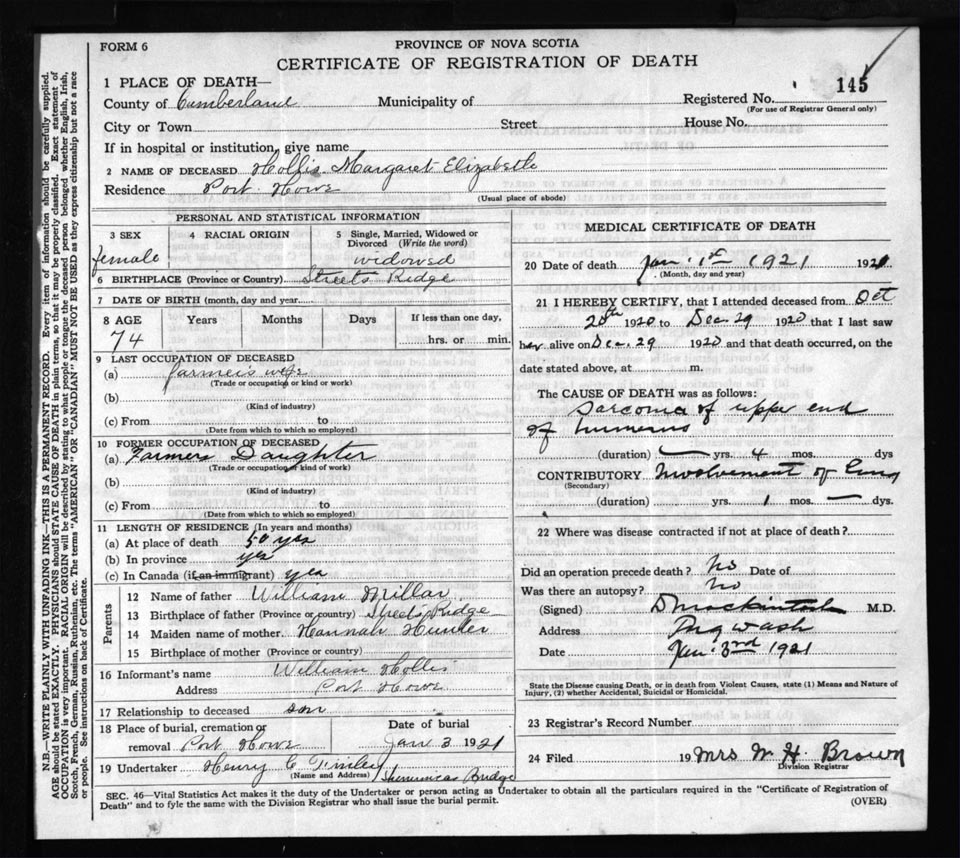 FORM 6
PROVINCE OF NOVA SCOTIA
CERTIFICATE OF REGISTRATION OF DEATH
145
1 PLACE OF DEATH—
County of Cumberland Municipality of Registered No.
(For use of Registrar General only)
City or Town Street House No.
If in hospital or institution, give name
2 NAME OF DECEASED Hollis Margaret Elizabeth
Residence Port Howe
(Usual place of abode)
PERSONAL AND STATISTICAL INFORMATION
3 SEX female
4 RACIAL ORIGIN
5 Single, Married, Widowed or Divorced (Write the word) widowed
6 BIRTHPLACE (Province or Country) Streets Ridge
7 DATE OF BIRTH (month, day and year)
8 AGE Years Months Days If less than one day,
74 hrs. or min.
9 LAST OCCUPATION OF DECEASED
(a) farmer's wife
(Trade or occupation or kind or work)
(b)
(Kind of industry)
(c) From to
(Date from which to which so employed)
10 FORMER OCCUPATION OF DECEASED
(a) Farmers Daughter
(Trade or occupation or kind of work)
(b)
(Kind of industry)
(c) From to
(Date from which to which so employed)
11 LENGTH OF RESIDENCE (In years and months)
(a) At place of death 50 yrs
(b) In province yes
(c) In Canada (if an immigrant) yes
Parents
12 Name of father William Millar
13 Birthplace of father (Province or country) Streets Ridge
14 Maiden name of mother Hannah Hunter
15 Birthplace of mother (Province or country)
16 Informant's name William Hollis
Address Port Howe
17 Relationship to deceased son
18 Place of burial, cremation or removal Port Howe
Date of burial Jan 3 1921
19 Undertaker Henry C
(Name and Address) Bridge
MEDICAL CERTIFICATE OF DEATH
20 Date of death Jan. 1st 1921 1921
(Month, day and year)
21 I HEREBY CERTIFY, that I attended deceased from Oct
20th 1920 to Dec. 29 1920 that I last saw
her alive on Dec. 29 1920 and that death occurred, on the
date stated above, at m.
The CAUSE OF DEATH was as follows:
Sarcoma of upper end
of humerus
(duration) — yrs. 4 mos. dys
CONTRIBUTORY Involvement of Lung
(Secondary)
(duration) yrs. 1 mos. — dys.
22 Where was disease contracted if not at place of death?
Did an operation precede death? No Date of
Was there an autopsy? No
(Signed) D Mackintosh M.D.
Address Pugwash
Date Jan. 3rd 1921
State the Disease causing Death, or in death from Violent Causes, state (1) Means and Nature of
Injury, (2) whether Accidental, Suicidal or Homicidal.
23 Registrar's Record Number
24 Filed 19 Mrs W. H. Brown
Division Registrar
SEC. 46—Vital Statistics Act makes it the duty of the Undertaker or person acting as Undertaker to obtain all the particulars required in the "Certificate of Registration of
Death" and to fyle the same with the Division Registrar who shall issue the burial permit.
(OVER)
N.B.—WRITE PLAINLY WITH UNFADING INK—THIS IS A PERMANENT RECORD. Every item of information should be carefully supplied.
AGE should be stated EXACTLY. PHYSICIANS should STATE CAUSE OF DEATH in plain terms, so that it may be properly classified. Exact statement of
OCCUPATION is very important. RACIAL ORIGIN will be described by stating to what people or tongue the deceased person belonged whether English, Irish,
Scotch, French, German, Russian, Ruthenian, etc. The terms "AMERICAN" OR "CANADIAN" MUST NOT BE USED as they express citizenship but not a race
or people. See instructions on back of Certificate.